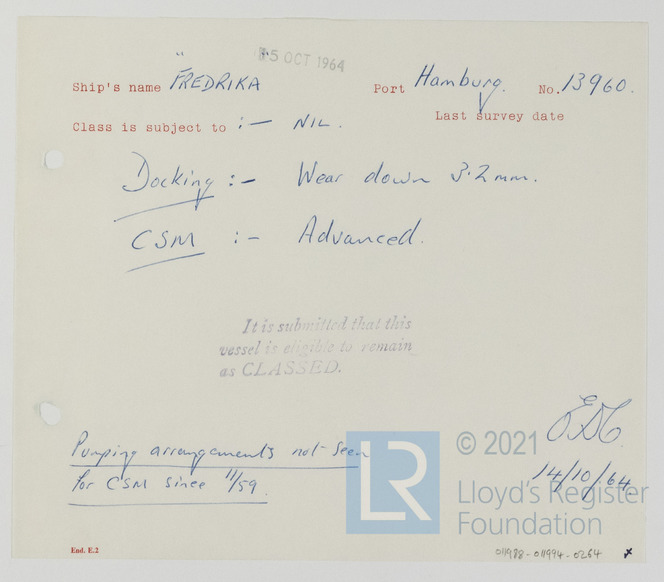 15 OCT 1964
Ship's name "FREDRIKA Port Hamburg. No. 13960.
Class is subject to :- NIL. Last survey date
Docking :- Wear down 3.2mm.
CSM :- Advanced.
It is submitted that this
vessel is eligible to remain
as CLASSED.
Pumping arrangements not seen
for CSM since 11/59.
14/10/64
LR
© 2021
Lloyd's Register
Foundation
End. E.2
011988-011994-0264